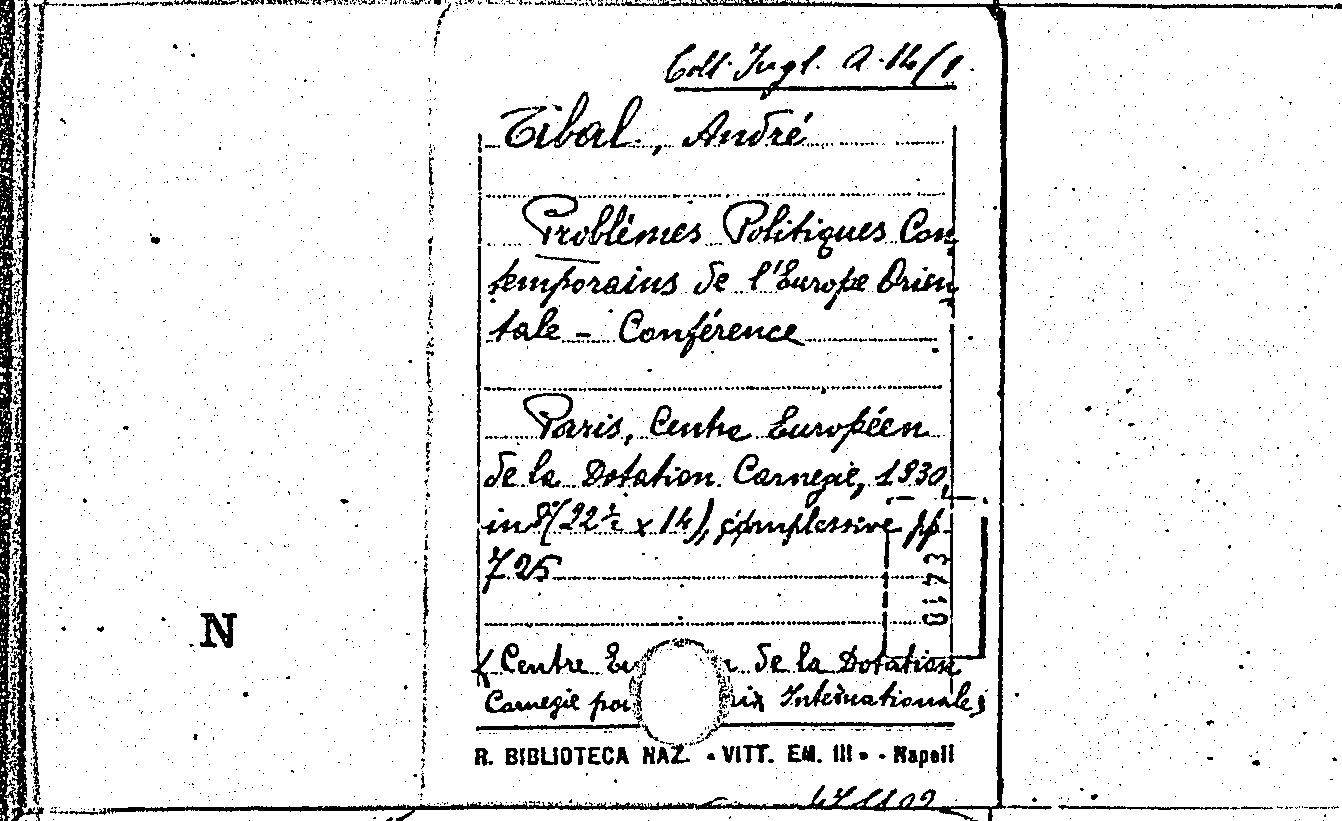 Coll. Ingl. A. 14/1.
Tibal, André
Problèmes Politiques Con,
temporains de l'Europe Orien,
tale - Conférence
Paris, Centre Européen
de la Dotation Carnegie, 1930,
in 8°(22½ x 14), complessive pp.
725
(Centre Eu de la Dotation
Carnegie pou Internationale)
R. BIBLIOTECA NAZ. «VITT. EM. III» - Napoli
N